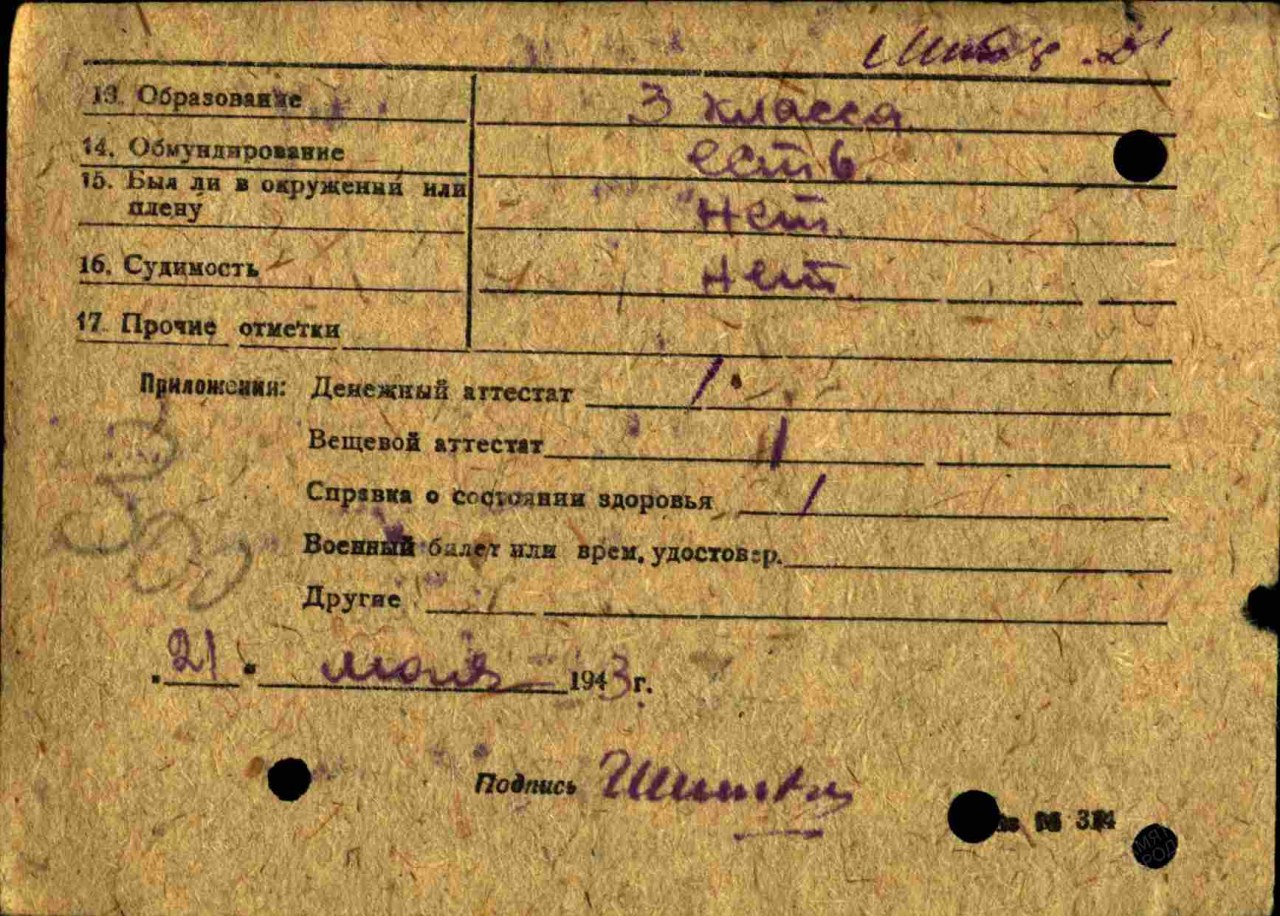 13. Образование 3 класса
14. Обмундирование есть
15. Был ли в окружении или плену нет
16. Судимость нет
17. Прочие отметки
Приложения: Денежный аттестат 1
Вещевой аттестат 1
Справка о состоянии здоровья 1
Военный билет или врем. удостовер.
Другие
"21" 1943 г.
Подпись
№ 314